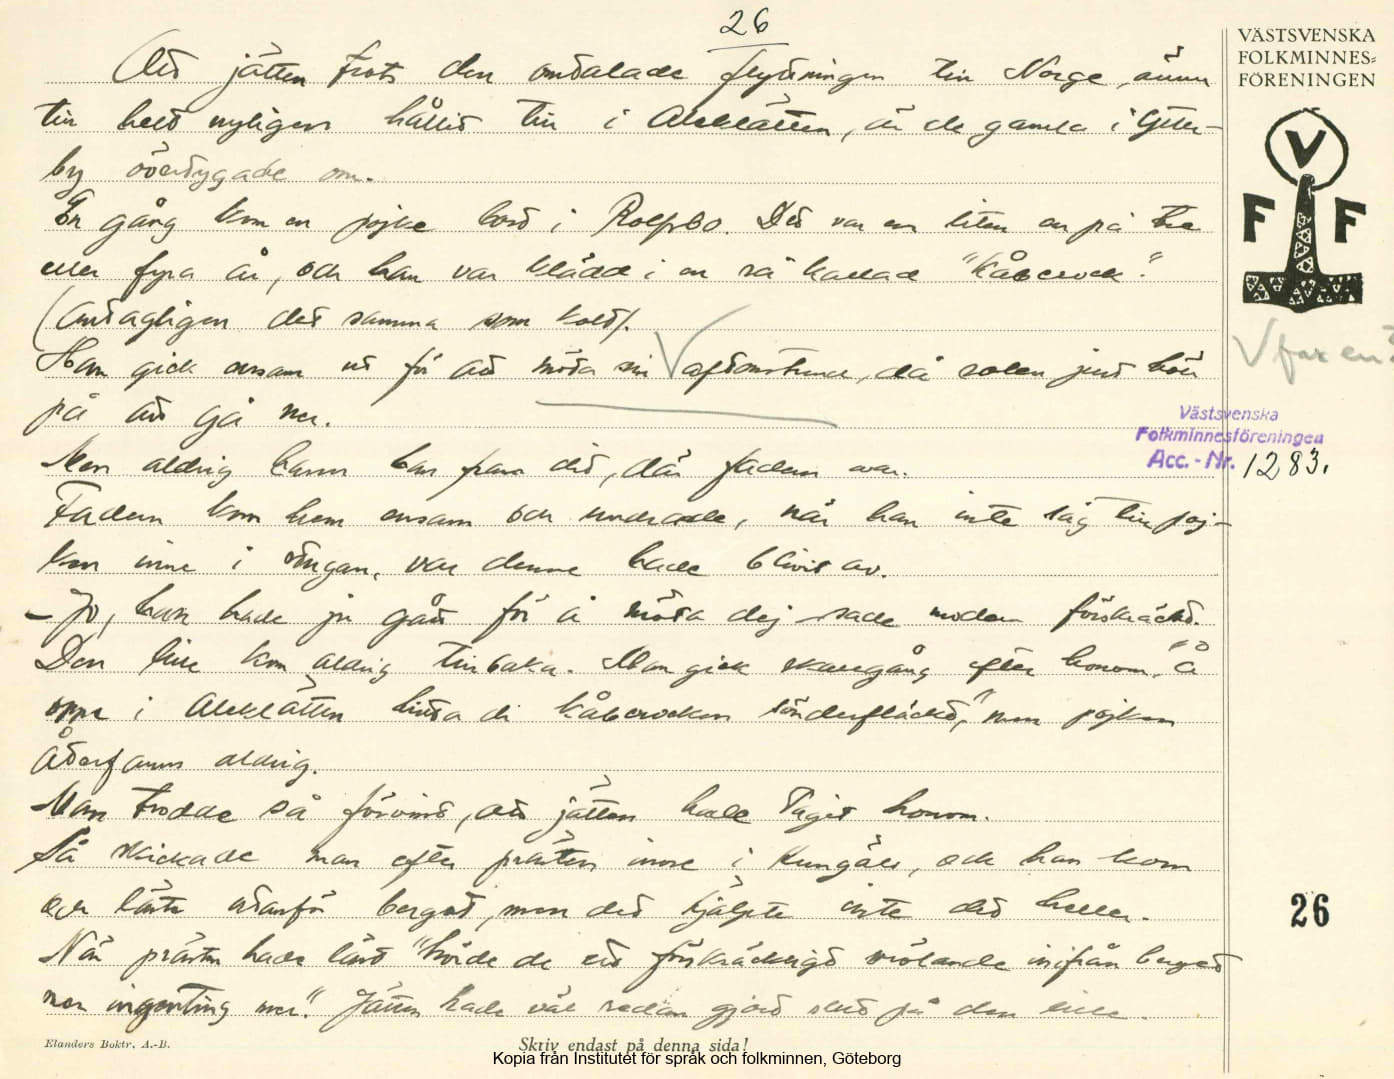 26
VÄSTSVENSKA
FOLKMINNES=
FÖRENINGEN
V
F F
Att jätten trots den omtalade flyttningen till Norge, ännu
till helt nyligen hållit till i Aleklätten, är de gamla i Ytter-
by övertygade om.
En gång kom en pojke bort i Rolfsbo. Det var en liten en på tre
eller fyra år, och han var klädd i en så kallad "kåberock".
(Antagligen det samma som kolt).
Han gick ensam ut för att möta sin V aftonstund, då solen just höll
på att gå ner.
V far en
Västsvenska
Folkminnesföreningen
Acc. - Nr. 1283.
Men aldrig hann han fram dit, där fadern var.
Fadern kom hem ensam och undrade, när han inte såg till poj-
ken inne i stugan, var denne hade blivit av.
– Jo, han hade ju gått för å möta dej sade modern förskräckt.
Den lille kom aldrig tillbaka. Man gick skallgång efter honom, "å
oppe i Aleklätten hitta di kåberocken sönderfläckt," men pojken
återfanns aldrig.
Man trodde så förvisst, att jätten hade tagit honom.
Så skickade man efter prästen inne i Kungälv, och han kom
och läste utanför berget, men det hjälpte inte det heller.
När prästen hade läst "hörde de ett förskräckligt vrålande inifrån berget
men ingenting mer." Jätten hade väl redan gjort slut på den lille.
26
Elanders Boktr. A.-B.
Skriv endast på denna sida!
Kopia från Institutet för språk och folkminnen, Göteborg